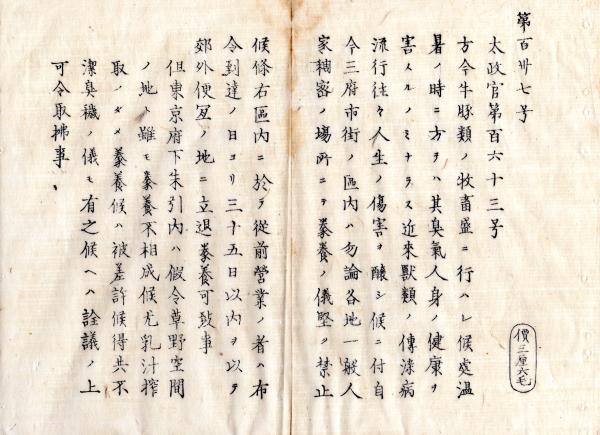 第百卅七号
太政官第百六十三号
價三厘六毛
方今牛豚類ノ牧畜盛ニ行ハレ候處温
暑ノ時ニ方テハ其臭氣人身ノ健康ヲ
害スルノミナラス近來獸類ノ傳染病
流行往々人生ノ傷害ヲ醸シ候ニ付自
今三府市街ノ區内ハ勿論各地一般人
家稠密ノ場所ニテ豢養ノ儀堅ク禁止
候條右區内ニ於テ從前營業ノ者ハ布
令到達ノ日ヨリ三十五日以内ヲ以テ
郊外便冝ノ地ニ立退豢養可致事
但東京府下朱引内ハ假令草野空間
ノ地ト雖モ豢養不相成候尤乳汁搾
取ノタメ豢養候ハ被差許候得共不
潔臭穢ノ儀モ有之候ヘハ詮議ノ上
可令取拂事